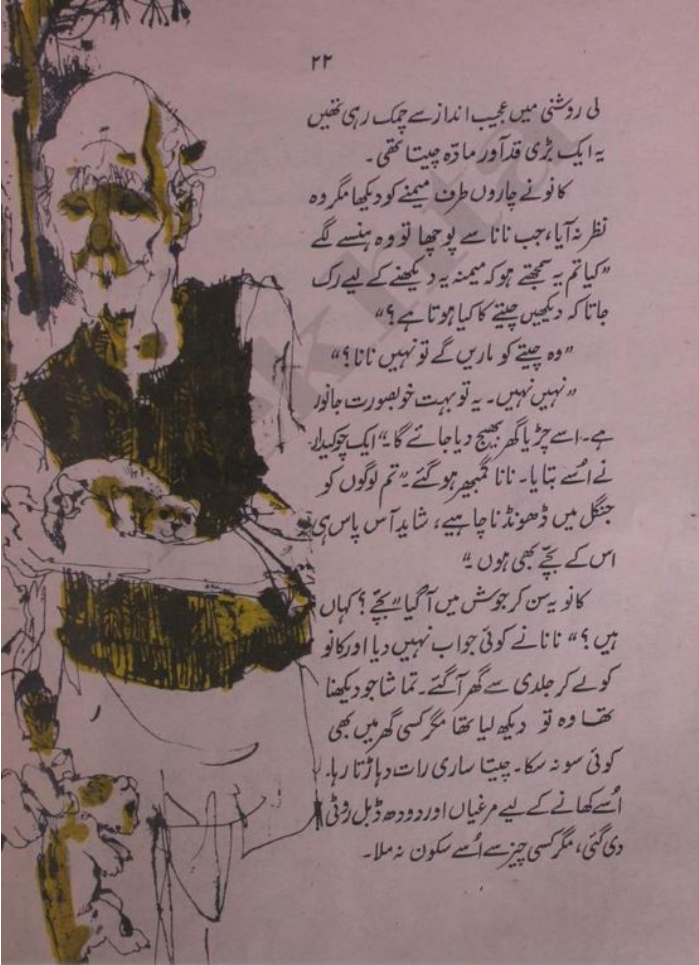 ۲۲
لی روشنی میں عجیب انداز سے چمک رہی تھیں
یہ ایک بڑی قدآور مادّہ چیتا تھی۔
کانو نے چاروں طرف میمنے کو دیکھا مگر وہ
نظر نہ آیا، جب نانا سے پوچھا تو وہ ہنسنے لگے
”کیا تم یہ سمجھتے ہو کہ میمنہ یہ دیکھنے کے لیے رک
جاتا کہ دیکھیں چیتے کا کیا ہوتا ہے؟“
”وہ چیتے کو ماریں گے تو نہیں نانا؟“
”نہیں نہیں۔ یہ تو بہت خوبصورت جانور
ہے۔ اسے چڑیا گھر بھیج دیا جائے گا۔“ ایک چوکیدار
نے اُسے بتایا۔ نانا گمبھیر ہو گئے۔ ”تم لوگوں کو
جنگل میں ڈھونڈنا چاہیے، شاید آس پاس ہی
اس کے بچّے بھی ہوں۔“
کانو یہ سن کر جوش میں آ گیا ”بچّے؟ کہاں
ہیں؟“ نانا نے کوئی جواب نہیں دیا اور کانو
کو لے کر جلدی سے گھر آ گئے۔ تماشا جو دیکھنا
تھا وہ تو دیکھ لیا تھا مگر کسی گھر میں بھی
کوئی سو نہ سکا۔ چیتا ساری رات دہاڑتا رہا۔
اُسے کھانے کے لیے مرغیاں اور دودھ ڈبل روٹی
دی گئی، مگر کسی چیز سے اُسے سکون نہ ملا۔